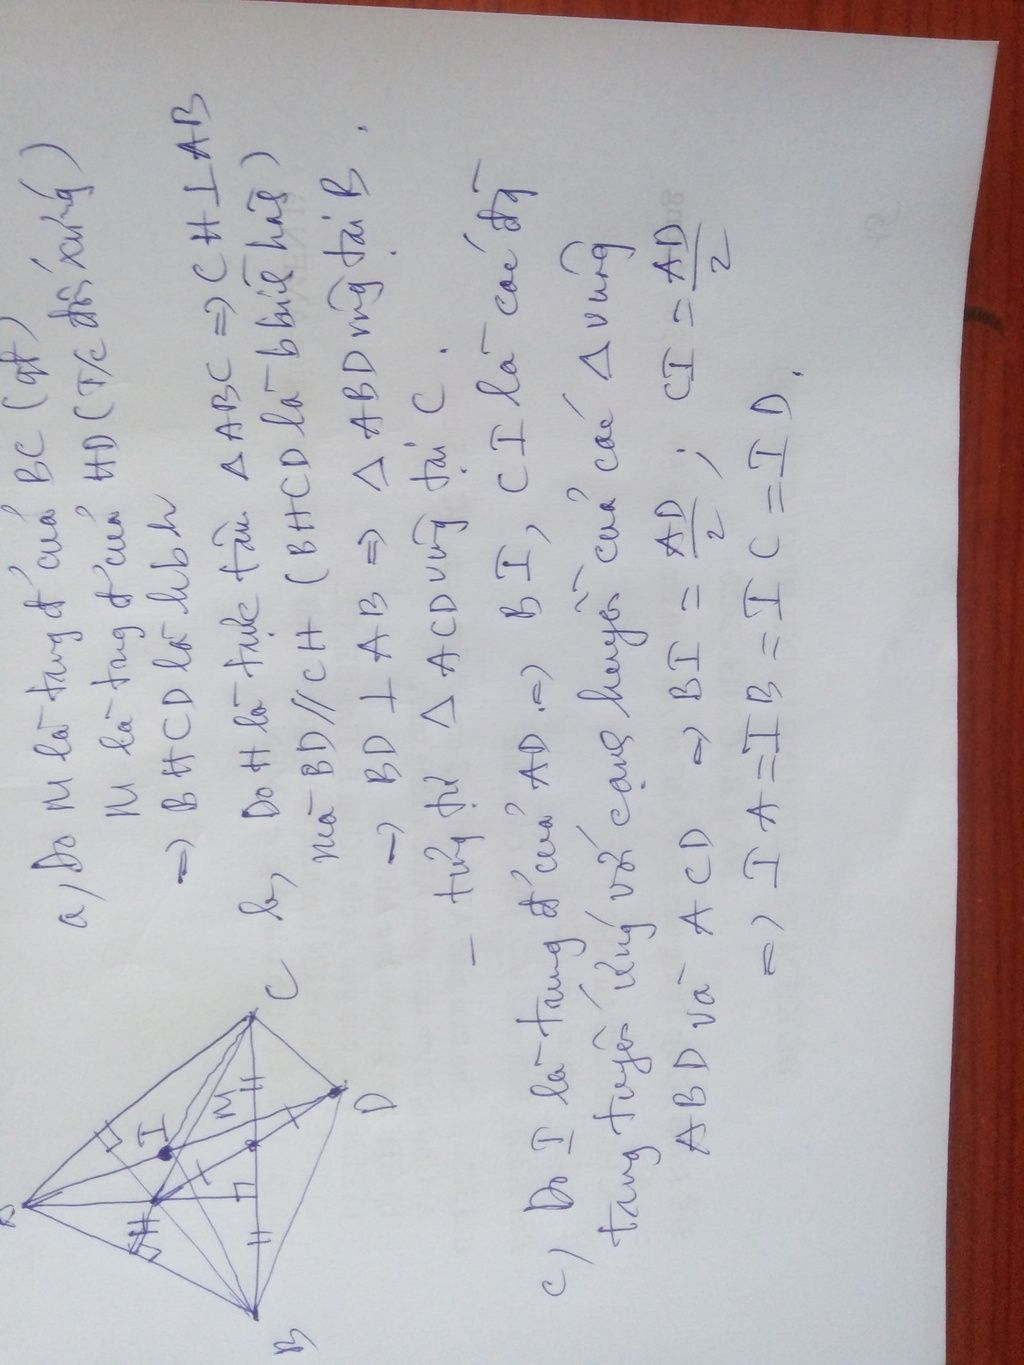 a, Do M là trung đ' của BC (gt)
M là trng đ' của HD (T/c đối xứng)
=> BHCD là hbh
b, Do H là trực tâm Δ ABC => CH ⊥ AB
mà BD // CH (BHCD là hbình hành)
=> BD ⊥ AB => Δ ABD vuông tại B.
- tương tự Δ ACD vuông tại C.
c) Do I là trung đ' của AD. => BI, CI là các đg
trung tuyến ứng với cạnh huyền của các Δ vuông
ABD và ACD => BI = AD/2 ; CI = AD/2
=> IA = IB = IC = ID.
B
H
I
M
C
D